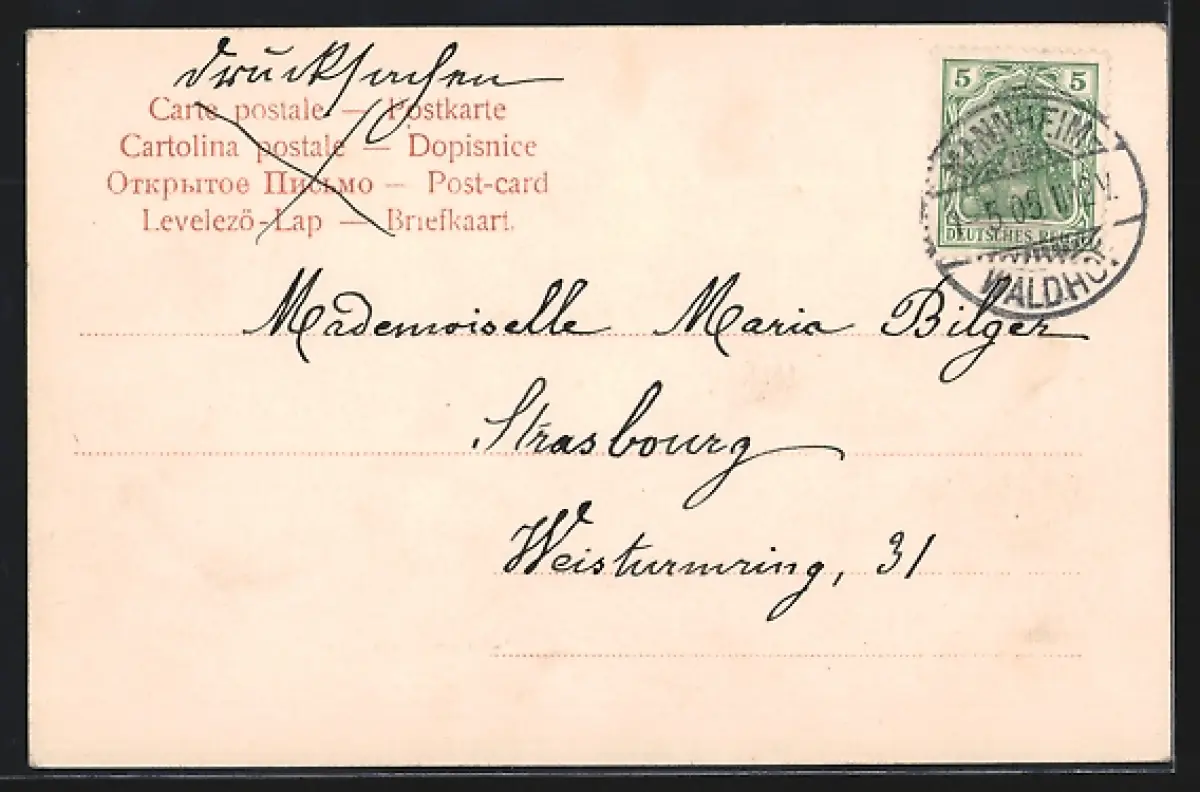 Drucksachen
Carte postale — Postkarte
Cartolina postale — Dopisnice
Открытое Письмо — Post-card
Levelező-Lap — Briefkaart.
5 5
DEUTSCHES REICH
MANNHEIM
5 05 11-12 V.
WALDHOF
Mademoiselle Maria Bilger
Strasbourg
Weisturmring, 31